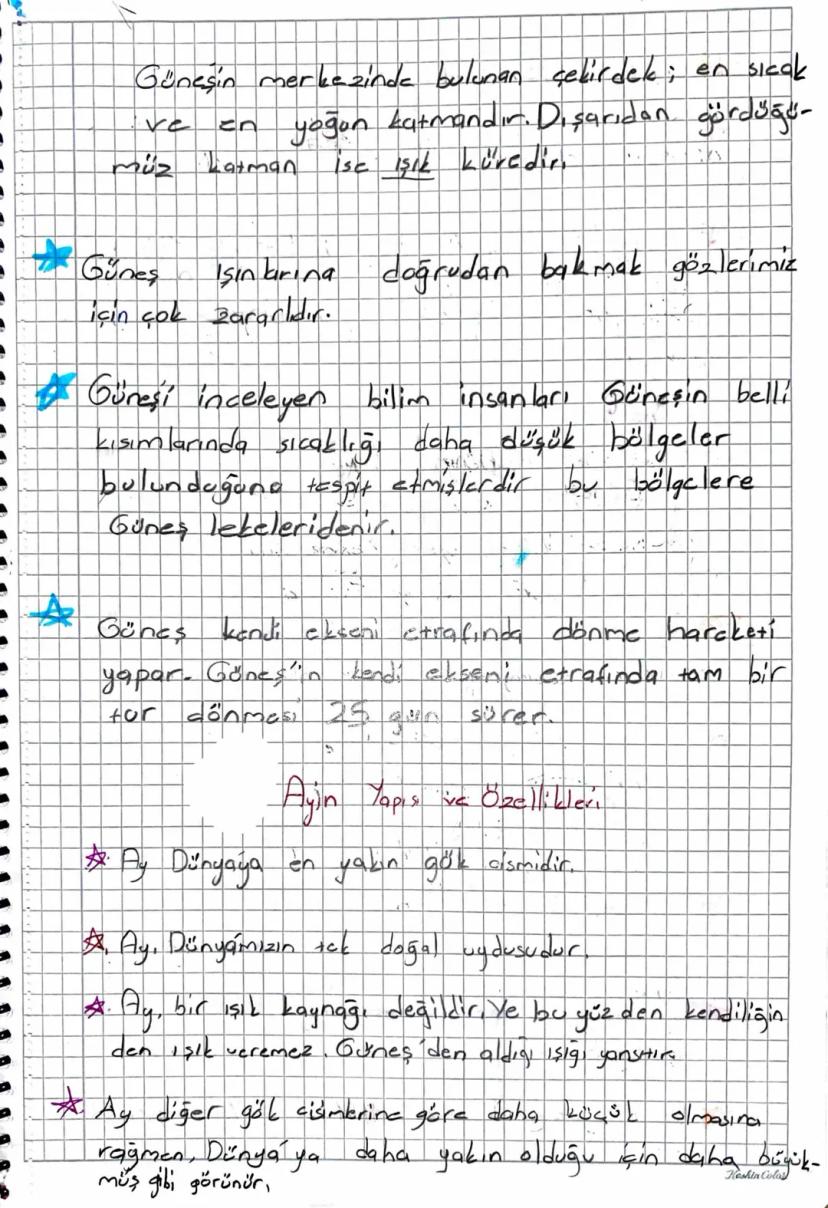 Güneşin merkezinde bulunan çekirdek; en sıcak
ve en yoğun katmandır. Dışarıdan gördüğü-
müz katman ise ışık küredir.
Güneş ışınlarına doğrudan bakmak gözlerimiz
için çok zararlıdır.
Güneşi inceleyen bilim insanları Güneşin belli
kısımlarında sıcaklığı daha düşük bölgeler
bulunduğunu tespit etmişlerdir bu bölgelere
Güneş lekeleridenir.
Güneş kendi ekseni etrafında dönme hareketi
yapar. Güneş'in kendi ekseni etrafında tam bir
tur dönmesi 25 gün sürer.
Ayin Yapısı ve Özellikleri
Ay Dünyaya en yakın gök cismidir.
Ay, Dünyamızın tek doğal uydusudur.
Ay, bir ışık kaynağı değildir. Ve bu yüzden kendiliğin
den ışık veremez. Güneş'den aldığı ışığı yansıtır.
Ay diğer gök cisimlerine göre daha küçük olmasına
rağmen, Dünya'ya daha yakın olduğu için daha büyük-
müş gibi görünür.